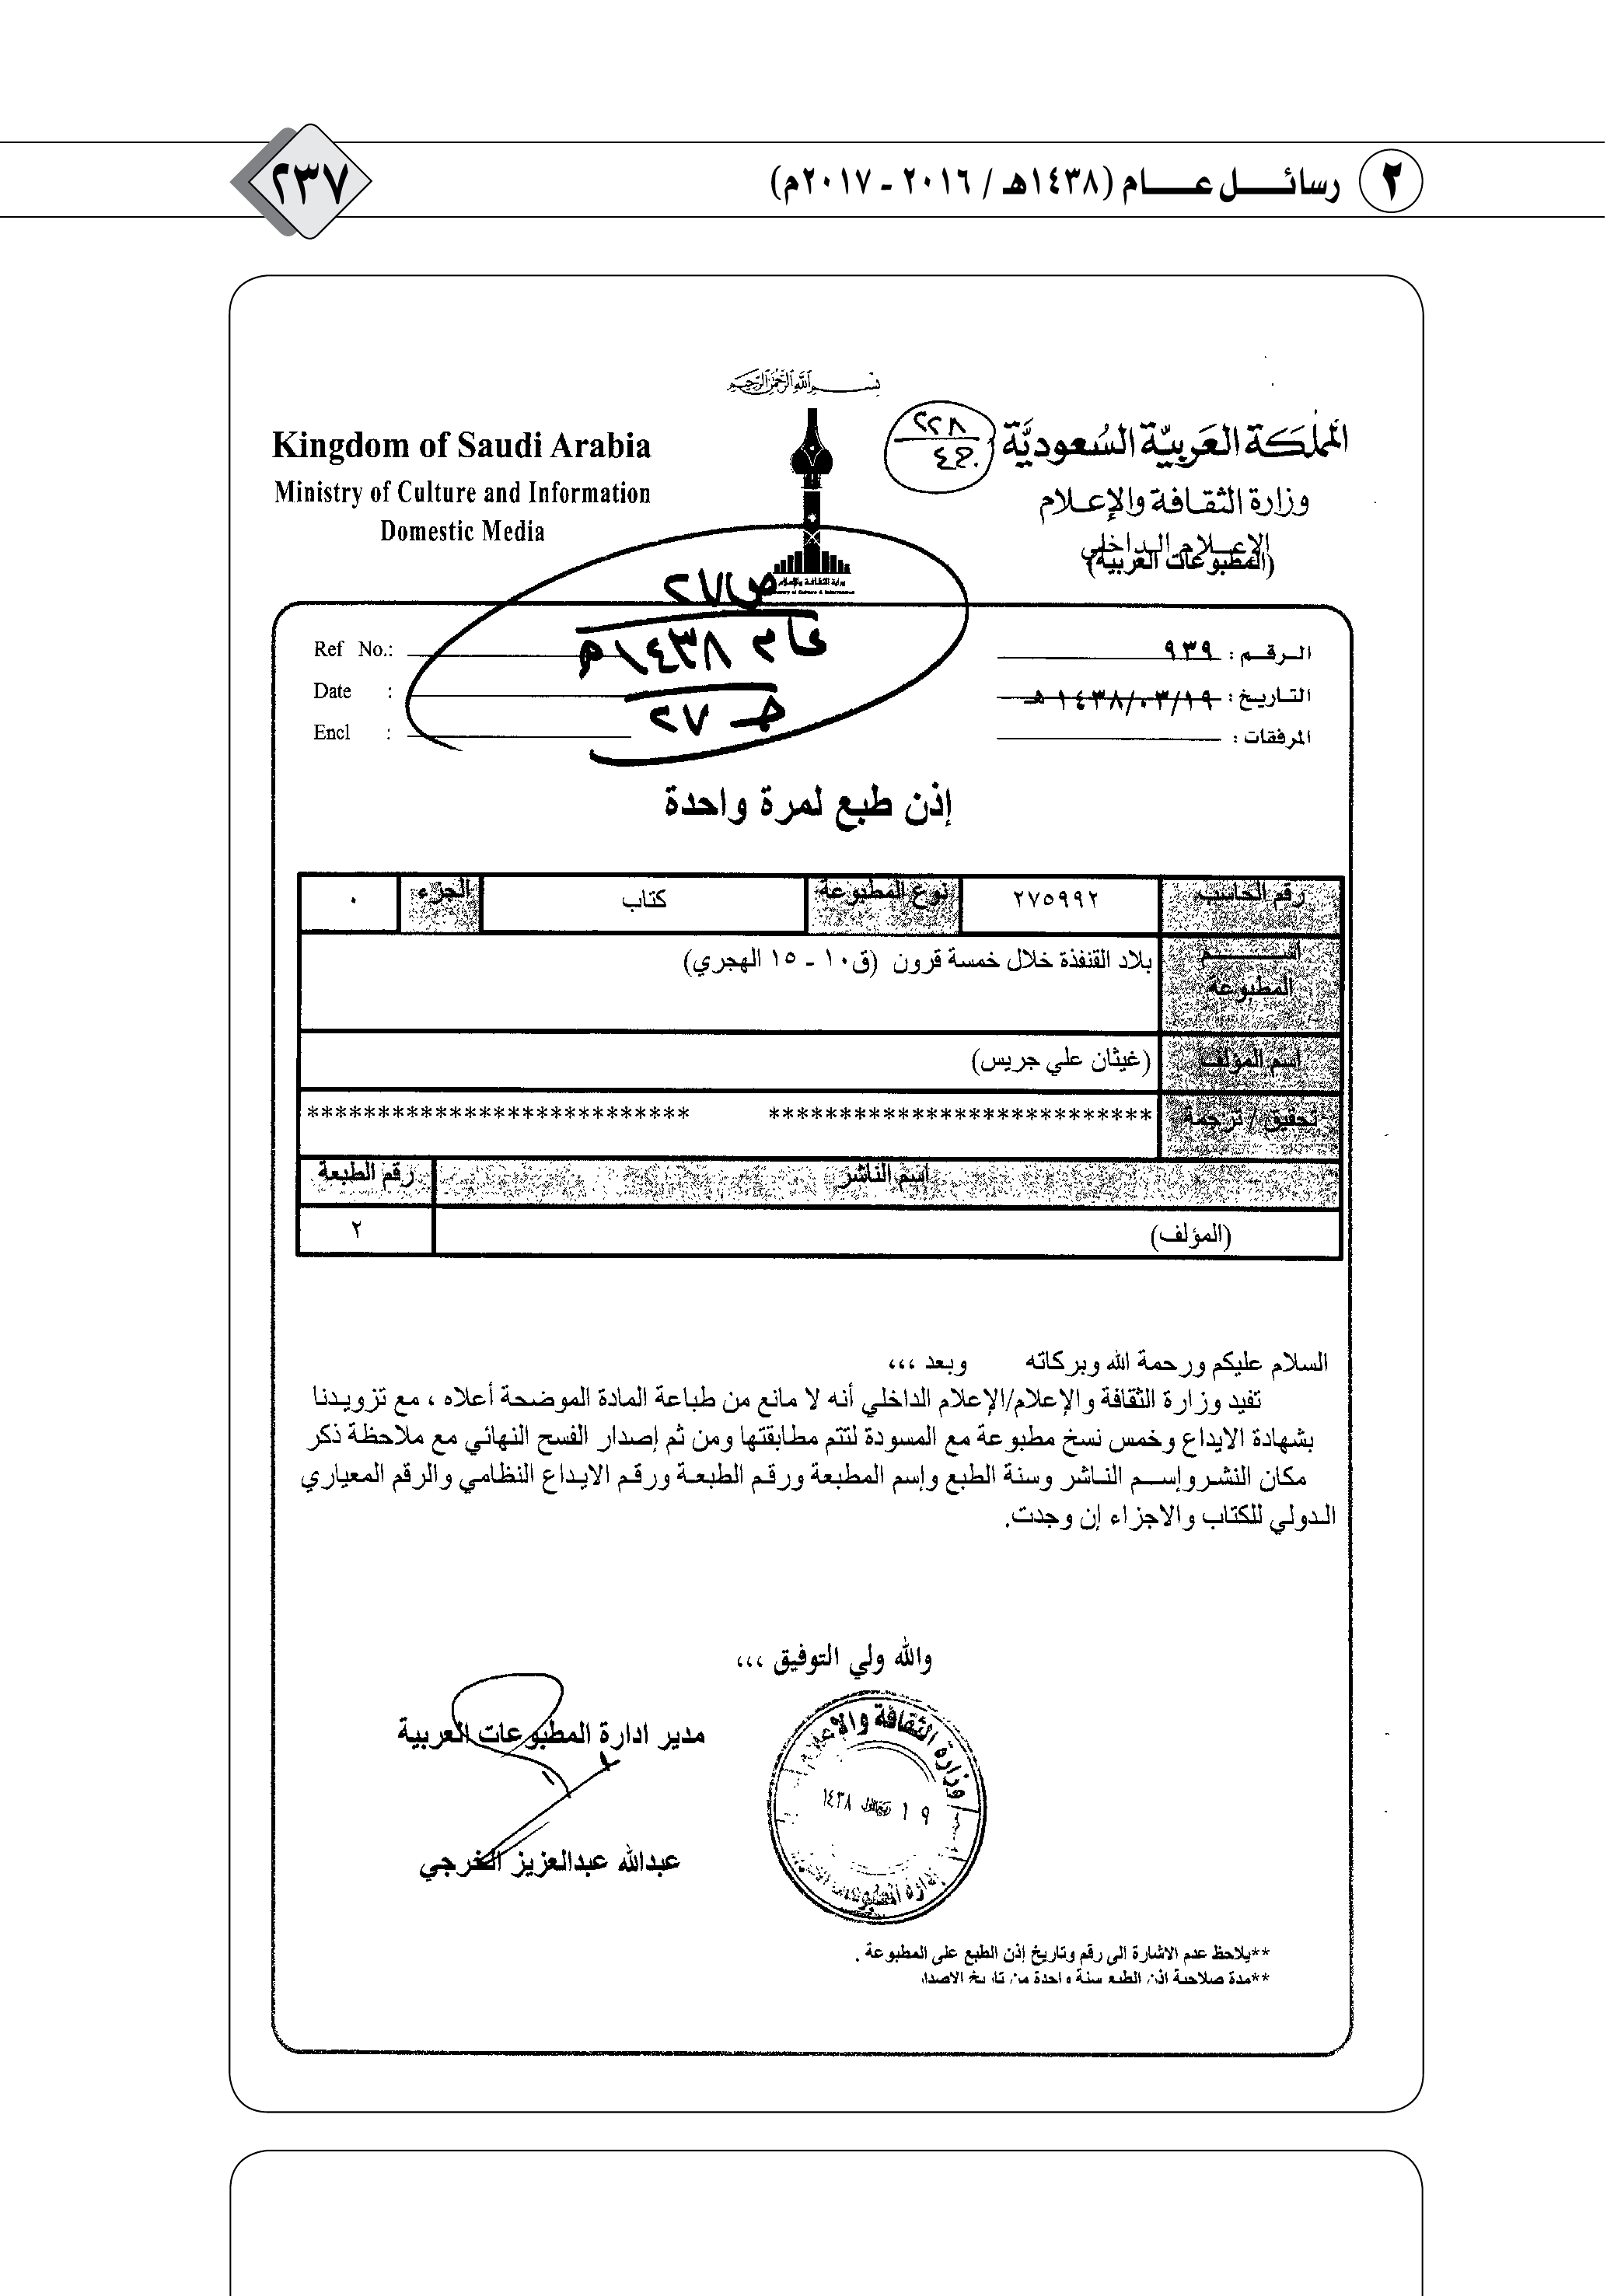 ٢ رسائل عام (١٤٣٨هـ / ٢٠١٦ - ٢٠١٧م)
٢٣٧
بسم الله الرحمن الرحيم
المملكة العربية السعودية
وزارة الثقافة والإعلام
الإعلام الداخلي
(المطبوعات العربية)
٢٢٨
Kingdom of Saudi Arabia
Ministry of Culture and Information
Domestic Media
وزارة الثقافة والإعلام
ص٢٧
عام ١٤٣٨هـ
جـ ٧٢
الرقم : ٩٣٩
التاريخ : ١٤٣٨/٠٣/١٩هـ
المرفقات :
Ref No.:
Date :
Encl :
إذن طبع لمرة واحدة
رقم الحاسب ٢٧٥٩٩٢ نوع المطبوعة كتاب الجزء ٠
اســم المطبوعة بلاد القنفذة خلال خمسة قرون (ق١٠ - ١٥ الهجري)
اسم المؤلف (غيثان علي جريس)
تحقيق / ترجمة *************************** ***************************
اسم الناشر رقم الطبعة
(المؤلف) ٢
السلام عليكم ورحمة الله وبركاته وبعد ،،،
تفيد وزارة الثقافة والإعلام/الإعلام الداخلي أنه لا مانع من طباعة المادة الموضحة أعلاه ، مع تزويدنا
بشهادة الايداع وخمس نسخ مطبوعة مع المسودة لتتم مطابقتها ومن ثم إصدار الفسح النهائي مع ملاحظة ذكر
مكان النشرواسم الناشر وسنة الطبع وإسم المطبعة ورقم الطبعة ورقم الايداع النظامي والرقم المعياري
الدولي للكتاب والاجزاء إن وجدت.
والله ولي التوفيق ،،،
مدير ادارة المطبوعات العربية
وزارة الثقافة والإعلام
١٩ ربيع الأول ١٤٣٨
إدارة المطبوعات
عبدالله عبدالعزيز الخرجي
**يلاحظ عدم الاشارة الى رقم وتاريخ إذن الطبع على المطبوعة .
**مدة صلاحية إذن الطبع سنة واحدة من تاريخ الاصدار